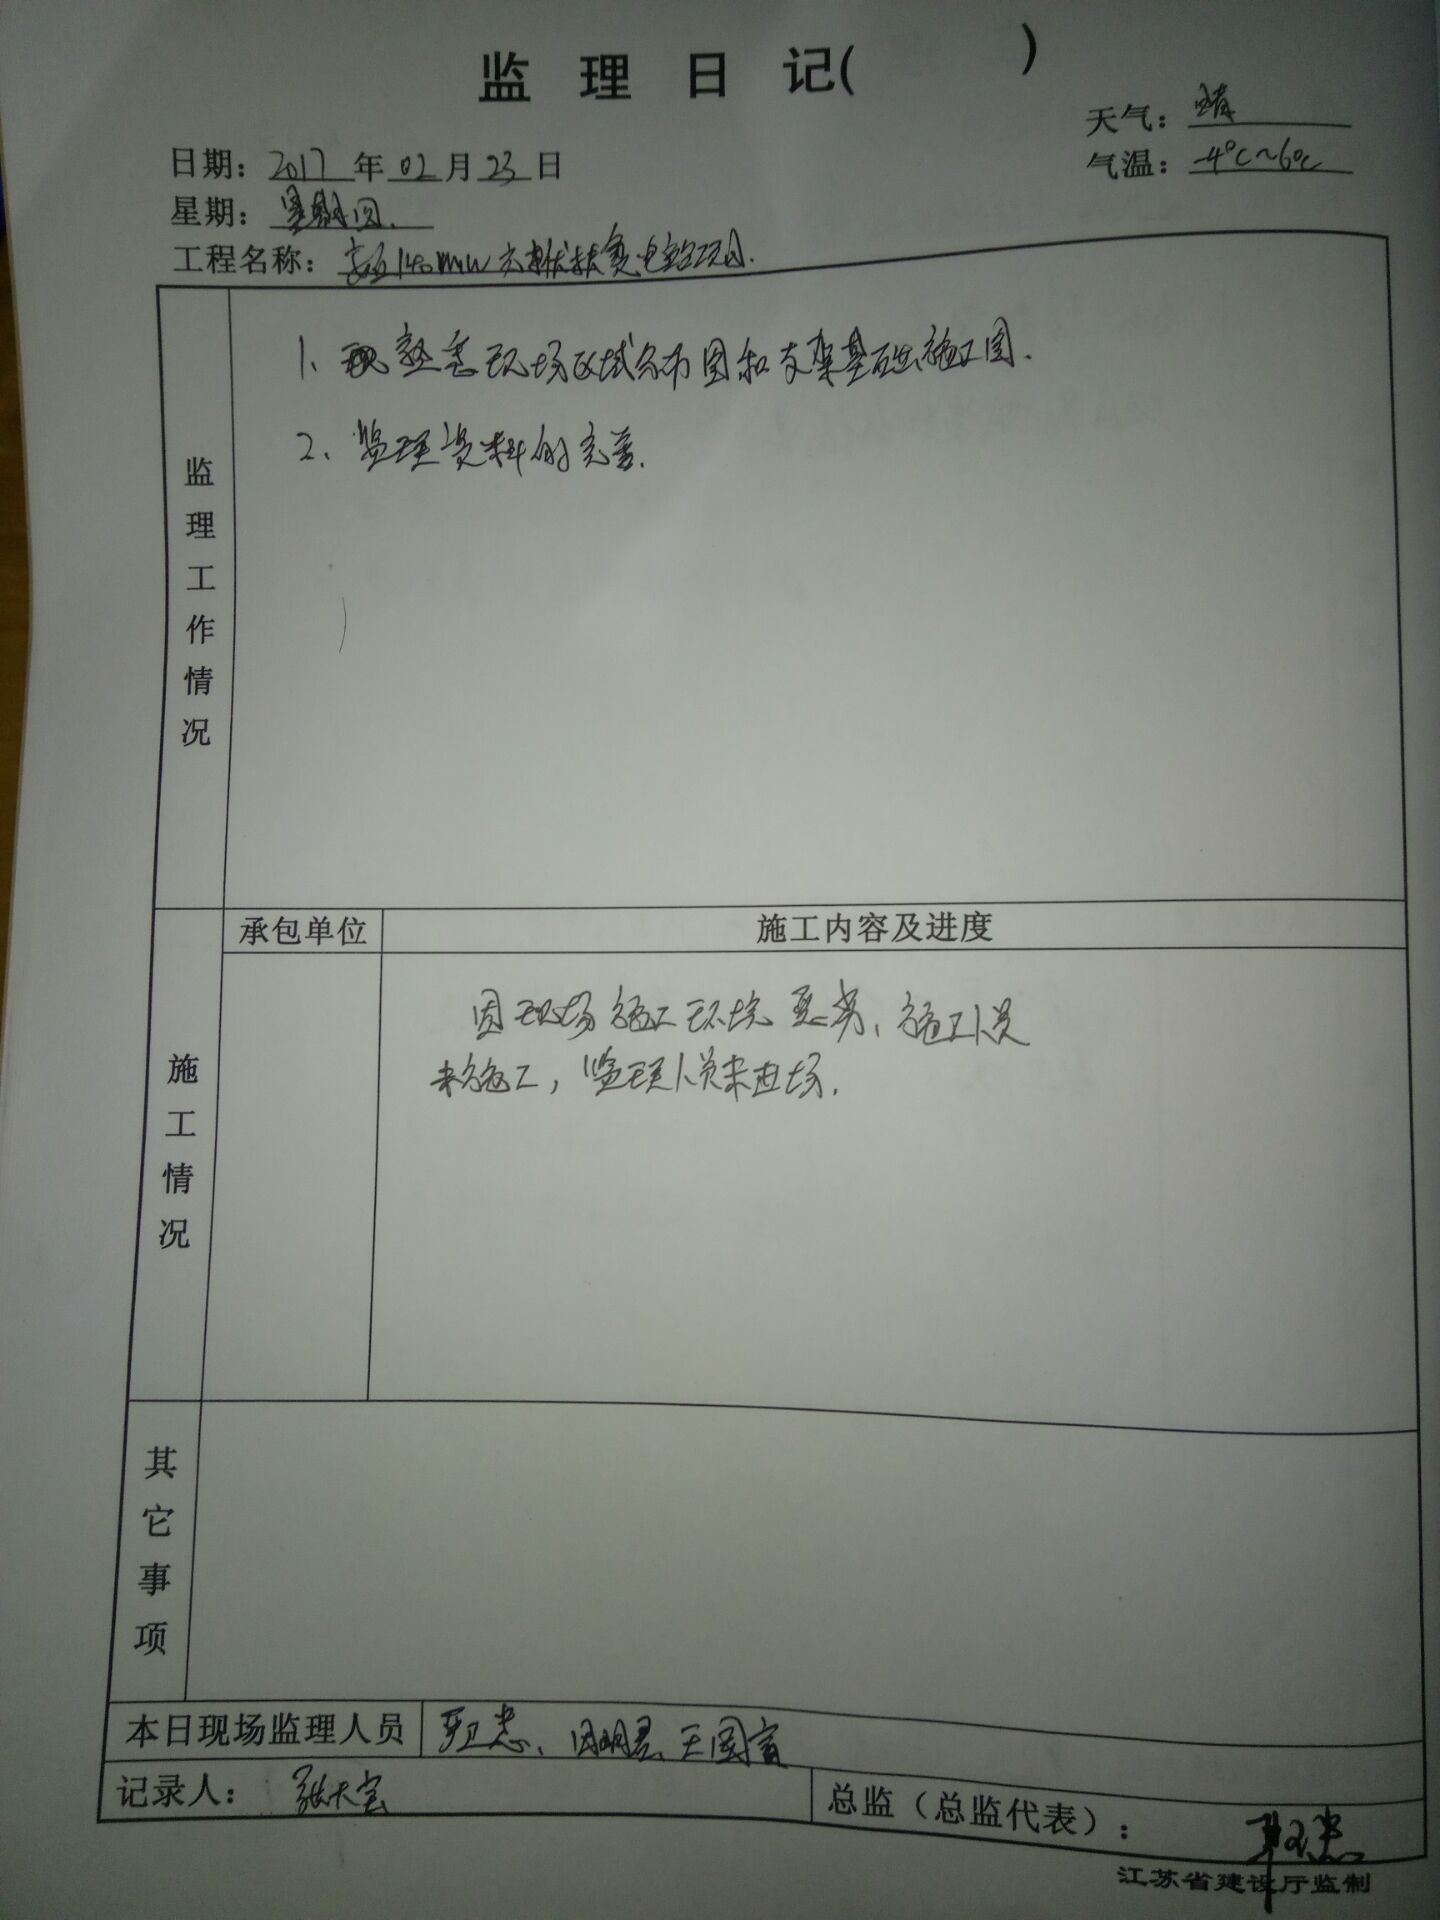 监理日记( )
天气：晴
日期：2017年02月23日
气温：-4℃~6℃
星期：星期四.
工程名称：140MW 电站项目.
监理工作情况
1、熟悉现场区域分布图和支架基础施工图.
2、监理资料的完善.
承包单位
施工内容及进度
施工情况
因现场施工环境恶劣、施工人员
未施工，监理人员未进场.
其它事项
本日现场监理人员
记录人：张大宝
总监（总监代表）：
江苏省建设厅监制